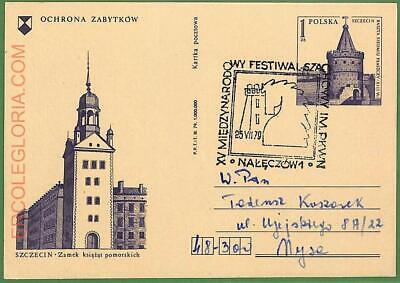 OCHRONA ZABYTKÓW
Kartka pocztowa
1
zł
POLSKA
SZCZECIN
XV MIĘDZYNARODOWY FESTIWAL SZACHOWY IM. PKWN
25 VII 79
NAŁĘCZÓW 1
W. Pan
Tadeusz Kosarek
ul. Ujejskiego 8A/22
48-300
Nysa
SZCZECIN - Zamek książąt pomorskich
ERCOLEGLORIA.COM